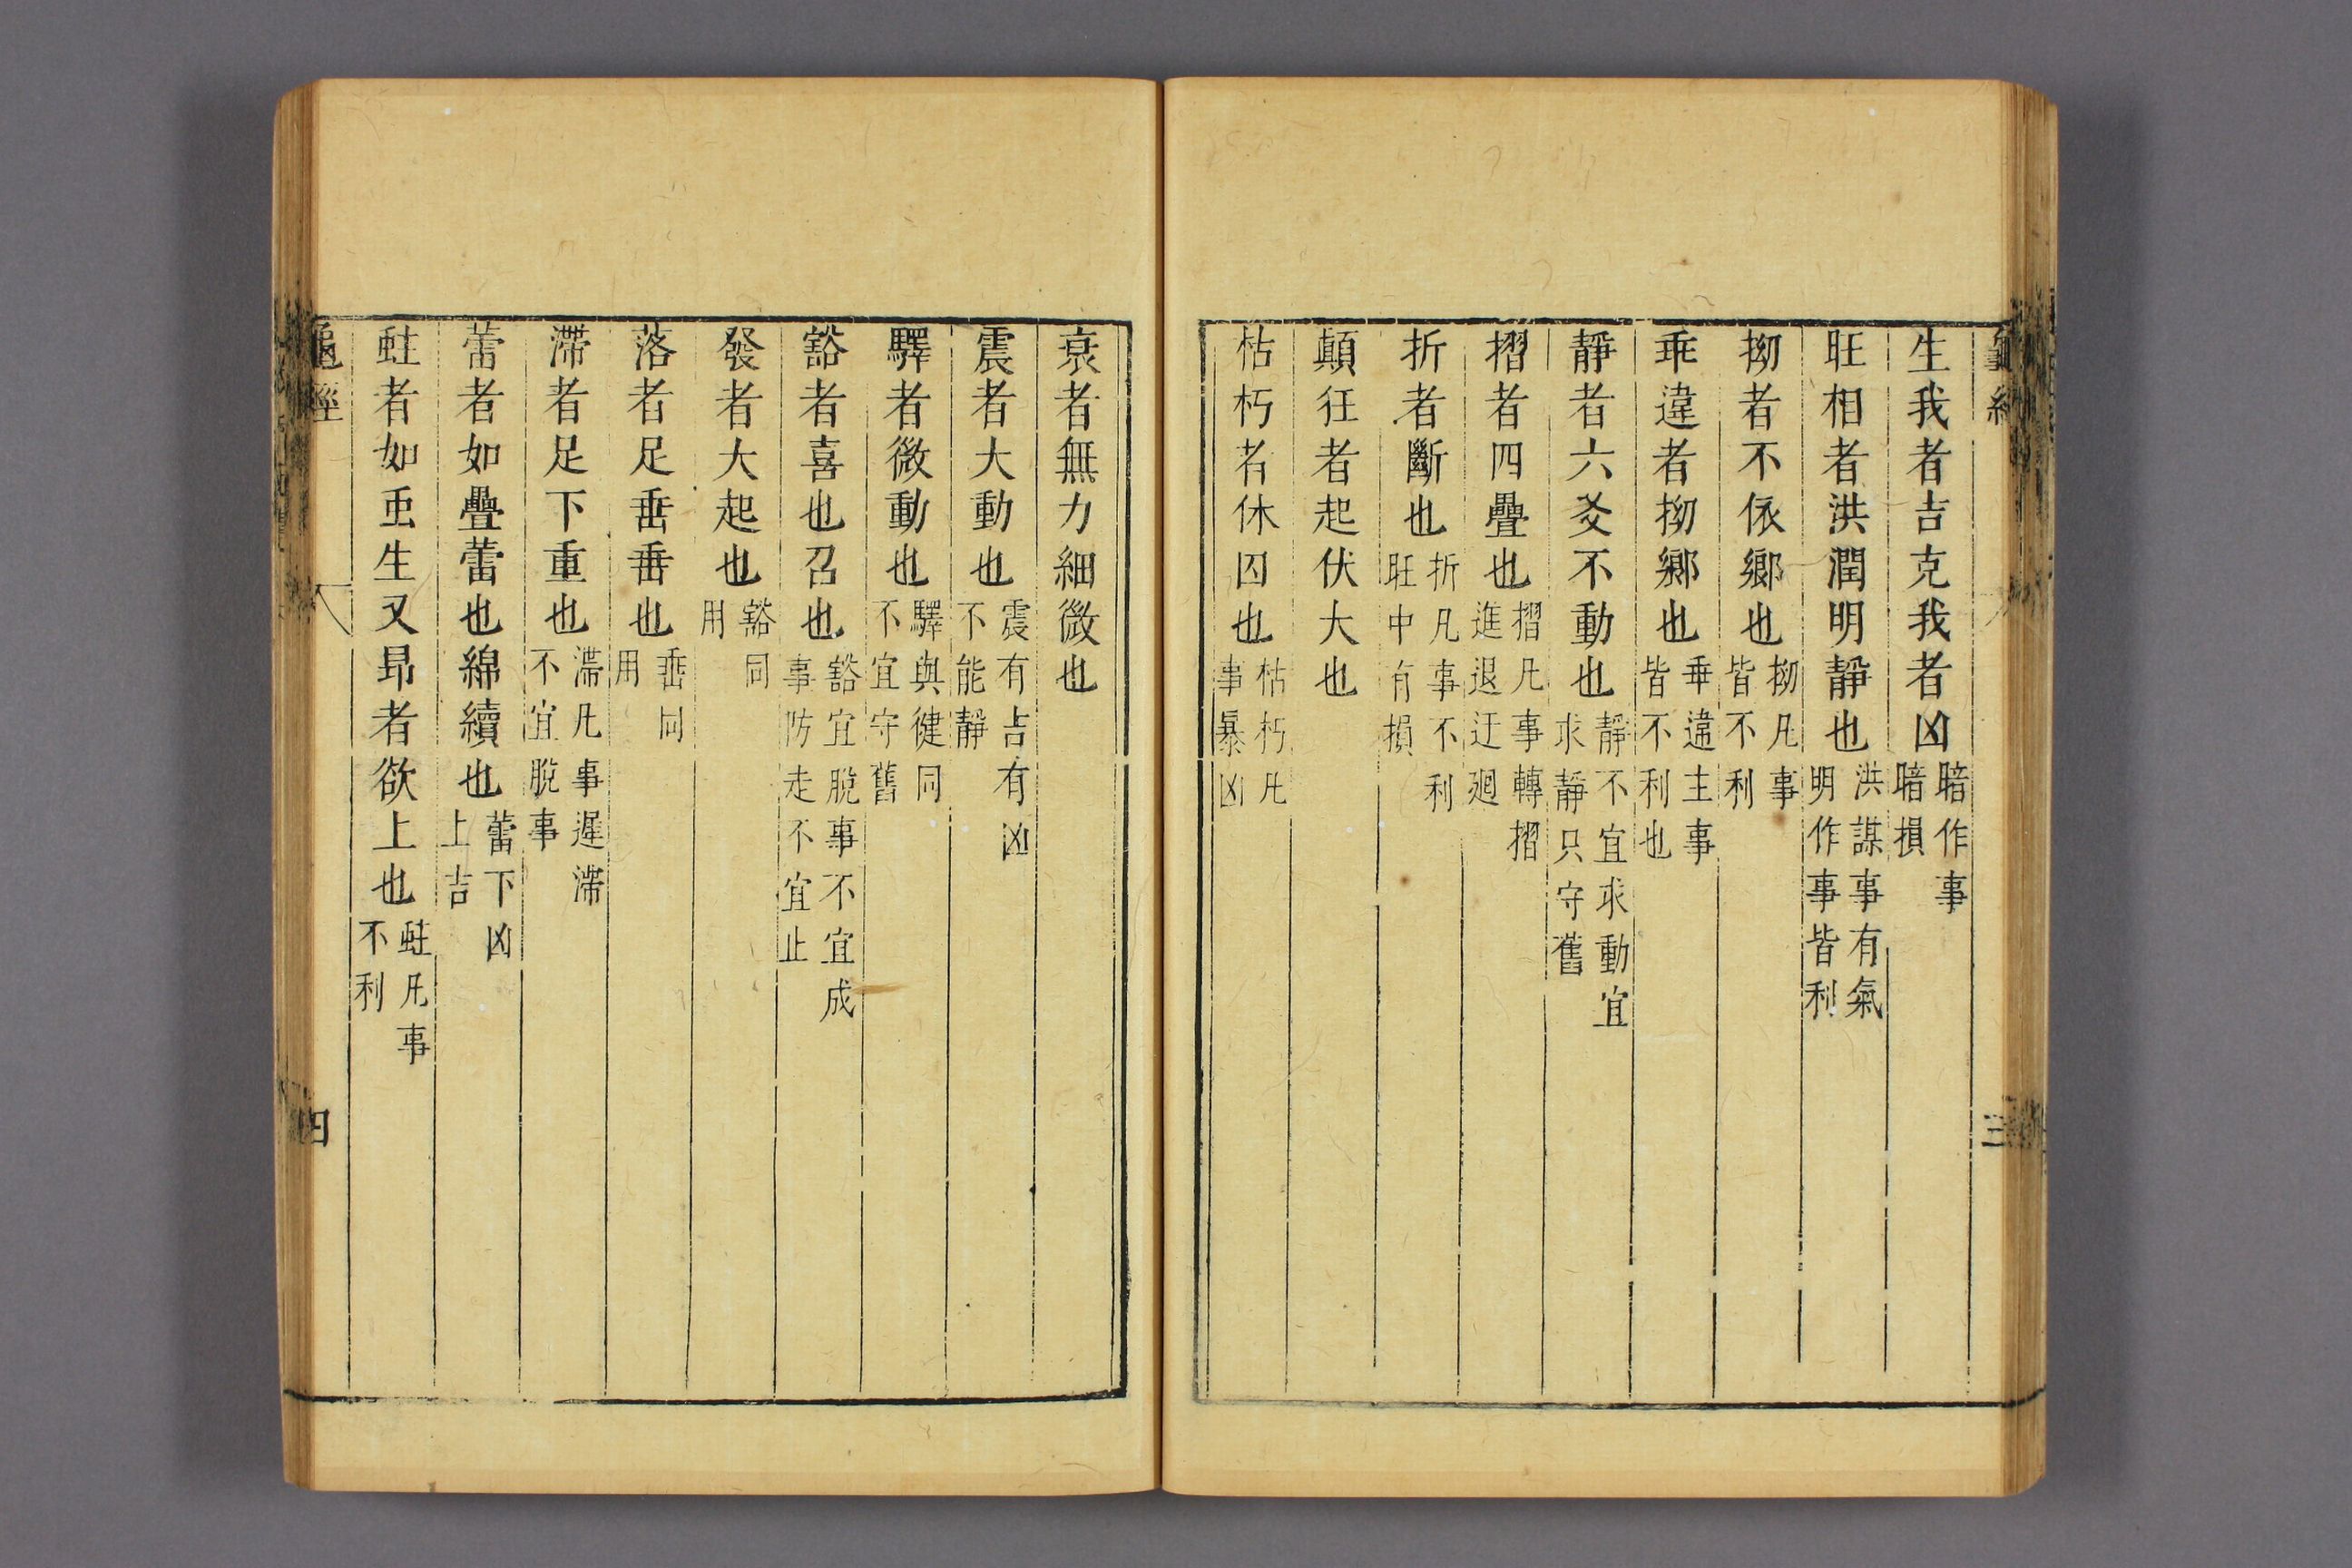 生我者吉克我者凶暗作事暗損
旺相者洪潤明靜也洪謀事有氣明作事皆利
拗者不依鄉也拗凡事皆不利
乖違者拗鄉也乖違主事皆不利也
靜者六爻不動也靜不宜求動宜求靜只守舊
摺者四疊也摺凡事轉摺進退迂廻
折者斷也折凡事不利旺中有損
顛狂者起伏大也
枯朽者休囚也枯朽凡事暴凶
三
衰者無力細微也
震者大動也震有吉有凶不能靜
驛者微動也驛與健同不宜守舊
豁者喜也召也豁宜脫事不宜成事防走不宜止
發者大起也豁同用
落者足垂垂也垂同用
滯者足下重也滯凡事遲滯不宜脫事
蕾者如疊蕾也綿續也蕾下凶上吉
蛀者如虫生又昻者欲上也蛀凡事不利
龜經
四